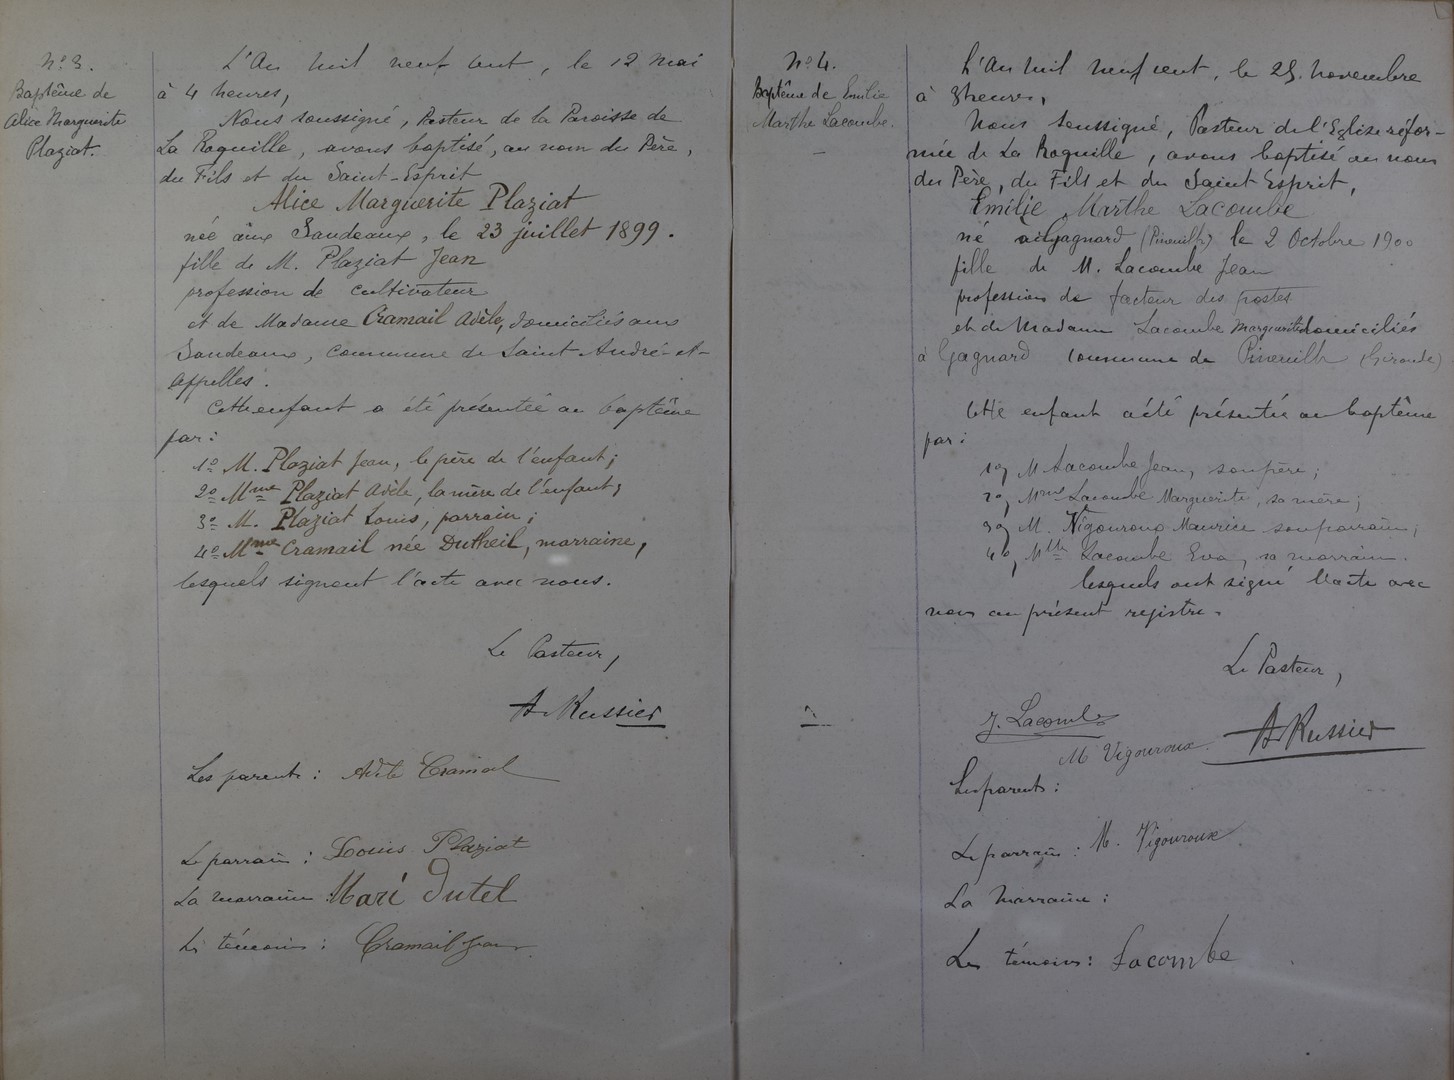 N° 3.
Baptême de
Alice Marguerite
Plaziat.
L'An mil neuf cent, le 12 Mai
à 4 heures,
Nous soussigné, Pasteur de la Paroisse de
La Roquille, avons baptisé, au nom du Père,
du Fils et du Saint-Esprit
Alice Marguerite Plaziat
née aux Sandeaux, le 23 juillet 1899.
fille de M. Plaziat Jean
profession de cultivateur
et de Madame Cramail Adèle, domiciliés aux
Sandeaux, commune de Saint André-et-
Appelles.
Cette enfant a été présentée au baptême
par:
1° M. Plaziat Jean, le père de l'enfant;
2° Mme Plaziat Adèle, la mère de l'enfant;
3° M. Plaziat Louis, parrain;
4° Mme Cramail née Dutheil, marraine,
lesquels signent l'acte avec nous.
Le Pasteur,
A. Russier
Les parents: Adèle Cramail
Le parrain: Louis Plaziat
La marraine Mari Dutel
Les témoins: Cramail Jean
N° 4.
Baptême de Emilie
Marthe Lacombe.
L'An mil neuf cent, le 25 novembre
à 3 heures,
Nous soussigné, Pasteur de l'Eglise réfor-
mée de La Roquille, avons baptisé au nom
du Père, du Fils et du Saint Esprit,
Emilie Marthe Lacombe
né à Gagnard (Pineuilh) le 2 Octobre 1900
fille de M. Lacombe Jean
profession de facteur des postes
et de Madame Lacombe Marguerite domiciliés
à Gagnard commune de Pineuilh (Gironde)
Cette enfant a été présentée au baptême
par:
1°, M Lacombe Jean, son père;
2°, Mme Lacombe Marguerite, sa mère;
3°, M. Vigouroux Maurice son parrain;
4°, Mlle Lacombe Eva, sa marraine.
lesquels ont signé l'acte avec
nous au présent registre.
Le Pasteur,
J. Lacombe
A. Russier
M Vigouroux.
Les parents:
Le parrain: M. Vigouroux
La Marraine:
Les témoins: Lacombe